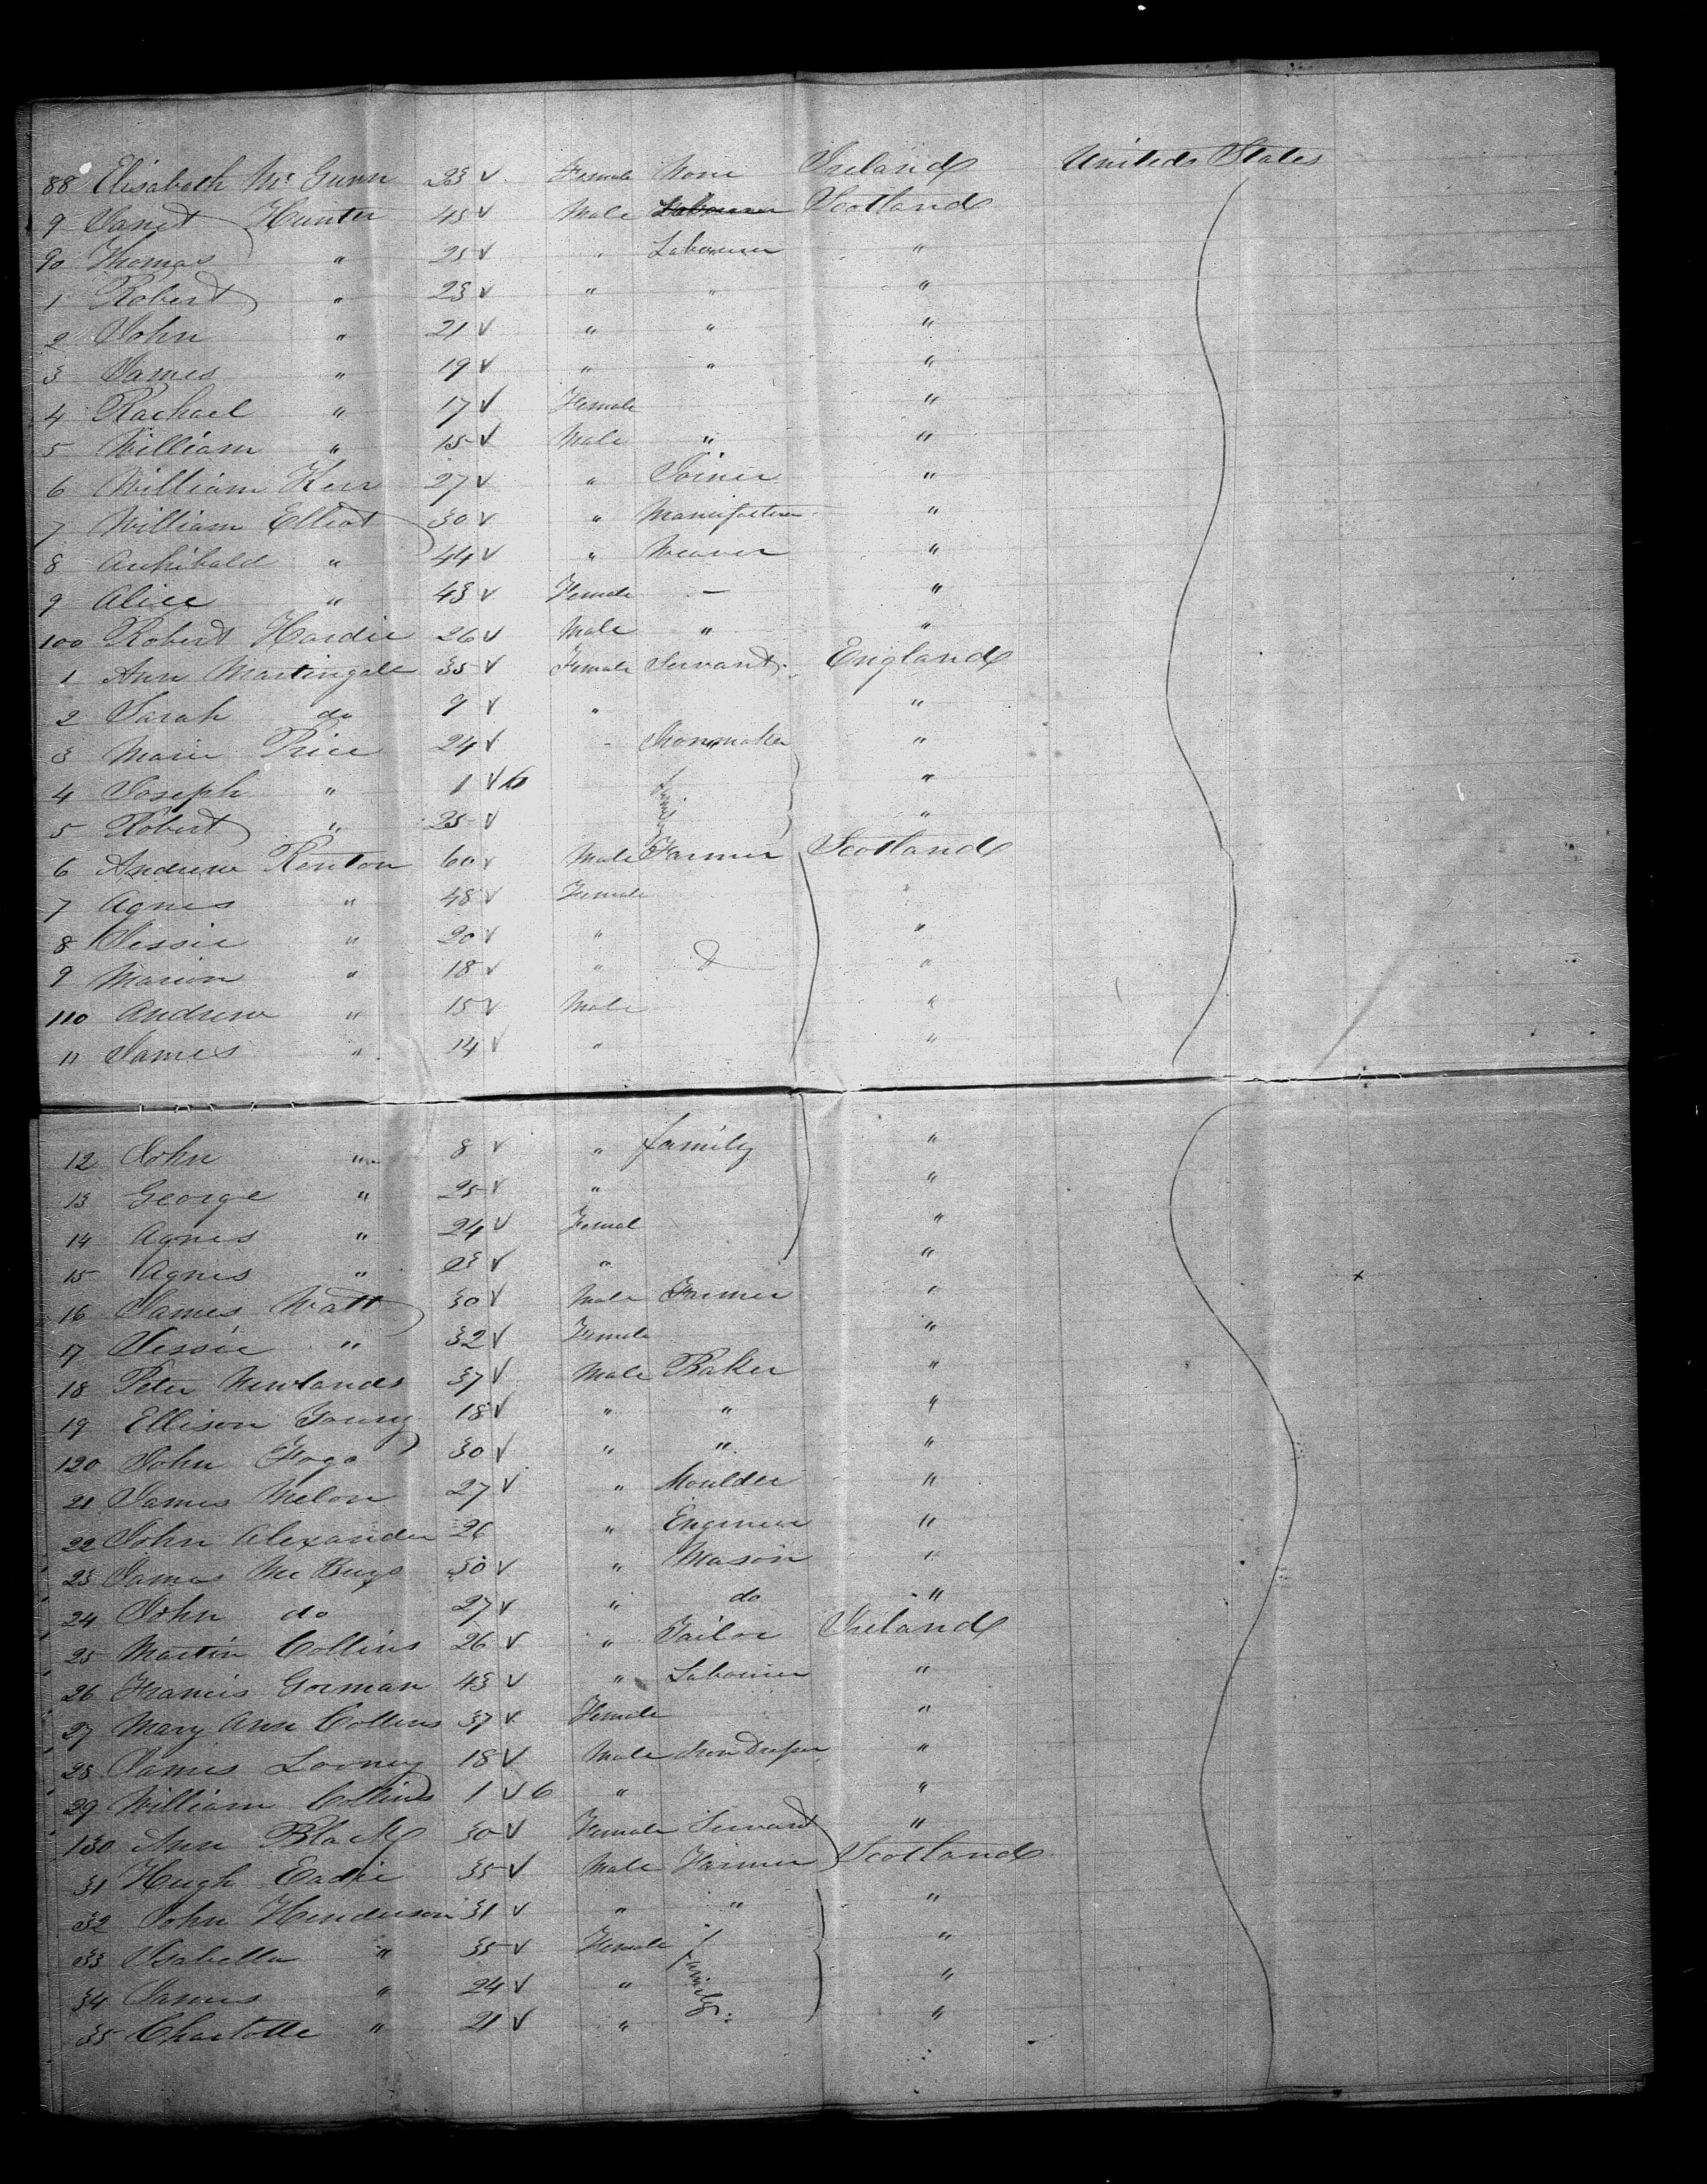 88 Elisabeth Mc Gunn 23 v Female None Ireland United States
9 Janet Hunter 45 v Male Labourer Scotland
90 Thomas " 25 v " Labourer "
1 Robert " 23 v " " "
2 John " 21 v " " "
3 James " 19 v " " "
4 Rachael " 17 v Female "
5 William " 15 v Male " "
6 William Kerr 27 v " Joiner "
7 William Elliot 30 v " Manufacturer "
8 Archibald " 44 v " Weaver "
9 Alice " 43 v Female — "
100 Robert Hardie 26 v Male " "
1 Ann Martingale 35 v Female Servant England
2 Sarah do 9 v " "
3 Marie Price 24 v "
4 Joseph " 1 v 6 family "
5 Robert " 25 v "
6 Andrew Renton 60 v Male Farmer Scotland
7 Agnes " 48 v Female "
8 Jessie " 20 v " "
9 Marion " 18 v " "
110 Andrew " 15 v Male "
11 James " 14 v " "
12 John " 8 v " family "
13 George " 25 v " "
14 Agnes " 24 v Femal "
15 Agnes " 23 v " "
16 James Watt 30 v Male Farmer "
17 Jessie " 32 v Female "
18 Peter Newlands 37 v Male Baker "
19 Ellison Young 18 v " " "
120 John Fogo 30 v " " "
21 James Melon 27 v " Moulder "
22 John Alexander 26 " Engineer "
23 James Mc 30 v " Mason "
24 John do 27 v " do "
25 Martin Collins 26 v " Tailor Ireland
26 Francis Gorman 43 v " Labourer "
27 Mary Ann Collins 37 v Female "
28 James Looney 18 v Male "
29 William Collins 1 v 6 " "
130 Ann Black 30 v Female Servant "
31 Hugh Eadie 35 v Male Farmer Scotland
32 John Henderson 31 v " " "
33 Isabella " 35 v Female "
34 James " 24 v " family "
35 Charlotte " 21 v " "